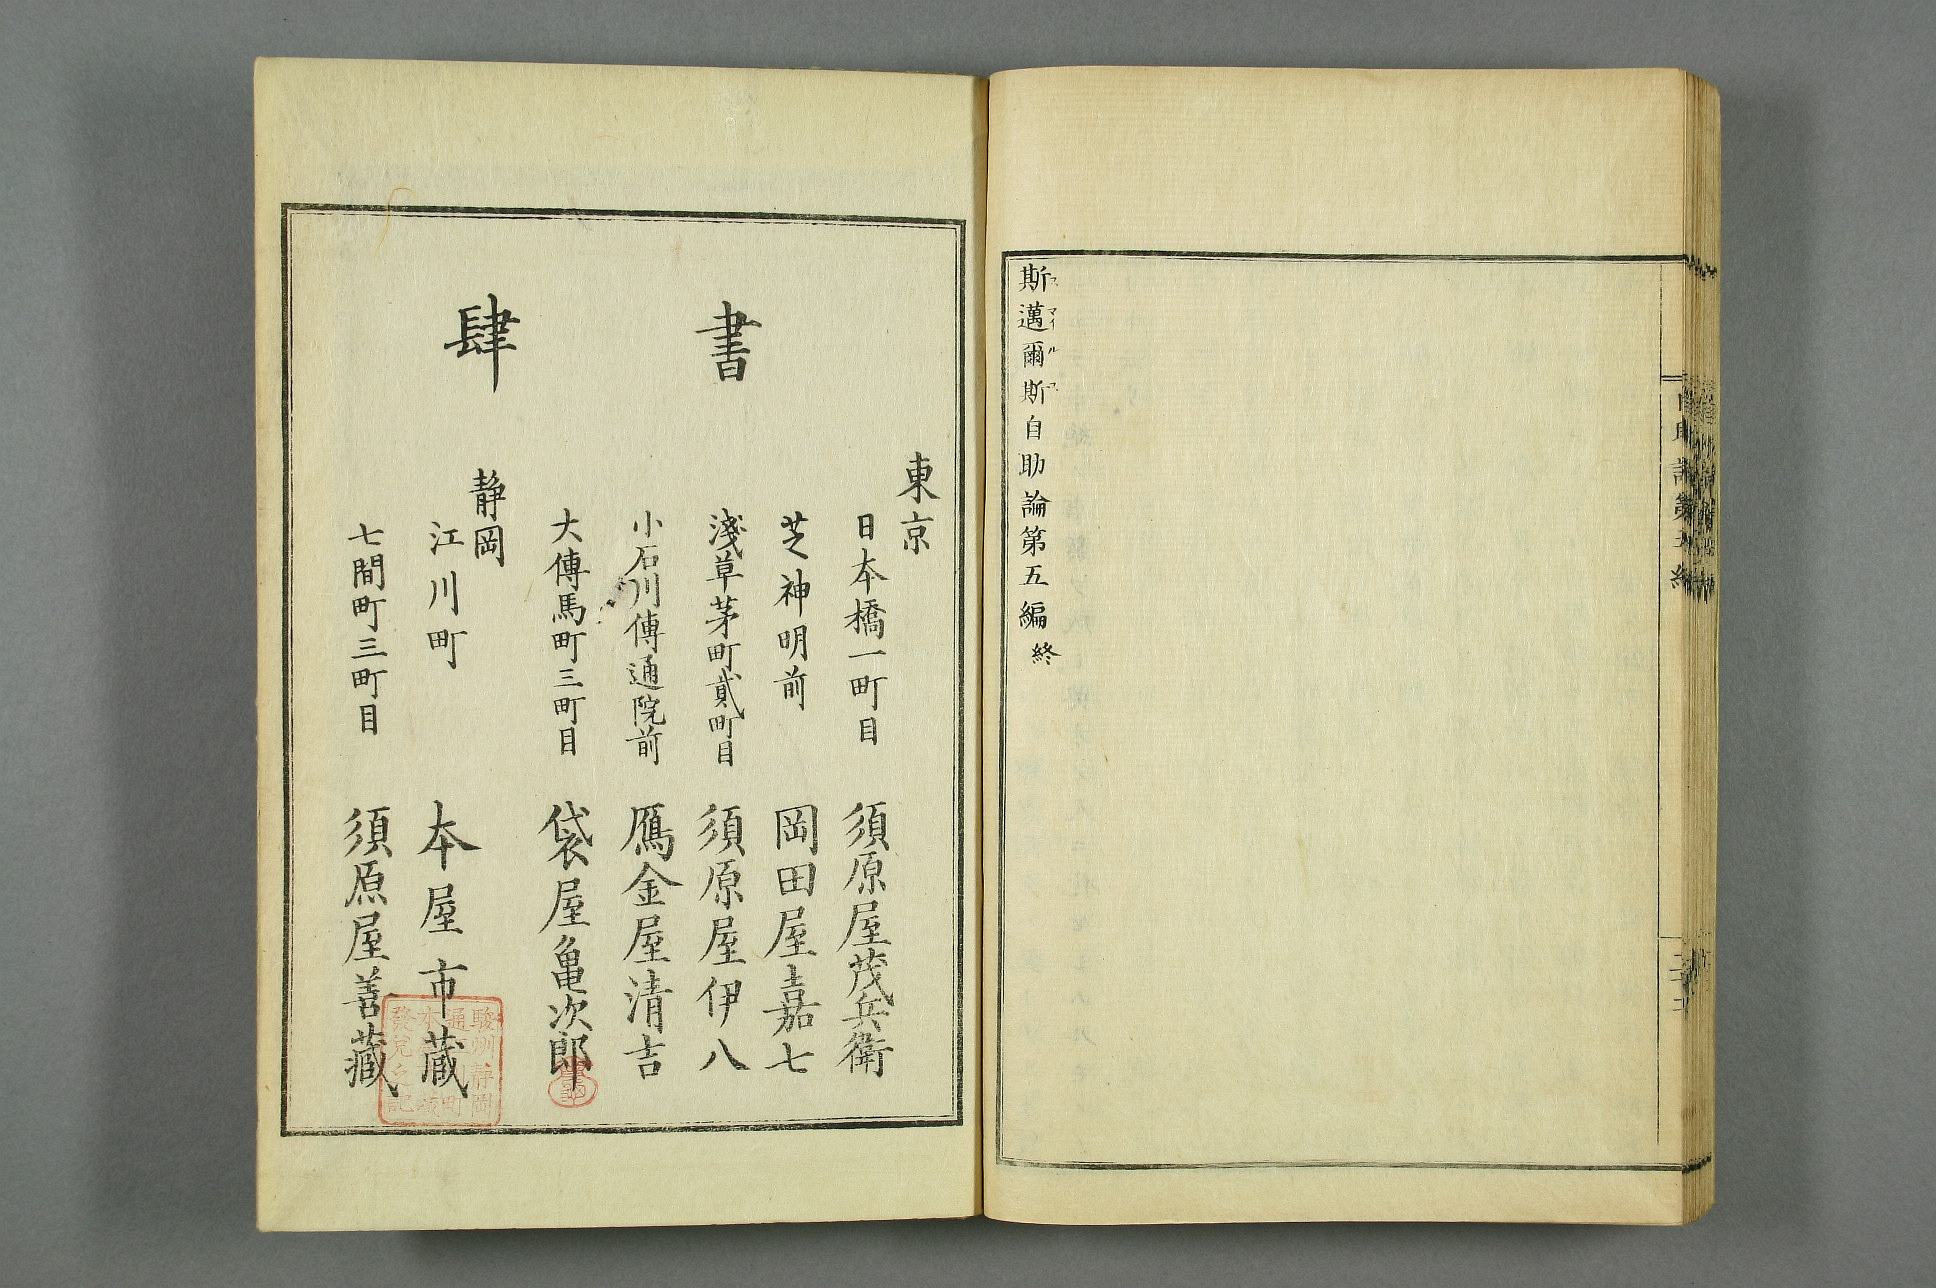 斯邁爾斯自助論第五編終
スマイルス
書肆
東京
日本橋一町目 須原屋茂兵衛
芝神明前 岡田屋嘉七
淺草茅町貳町目 須原屋伊八
小石川傳通院前 鴈金屋清吉
大傳馬町三町目 袋屋亀次郎
静岡
江川町 本屋市蔵
七間町三町目 須原屋善藏
駿州静岡
通江川町
本屋市蔵
發兌之記